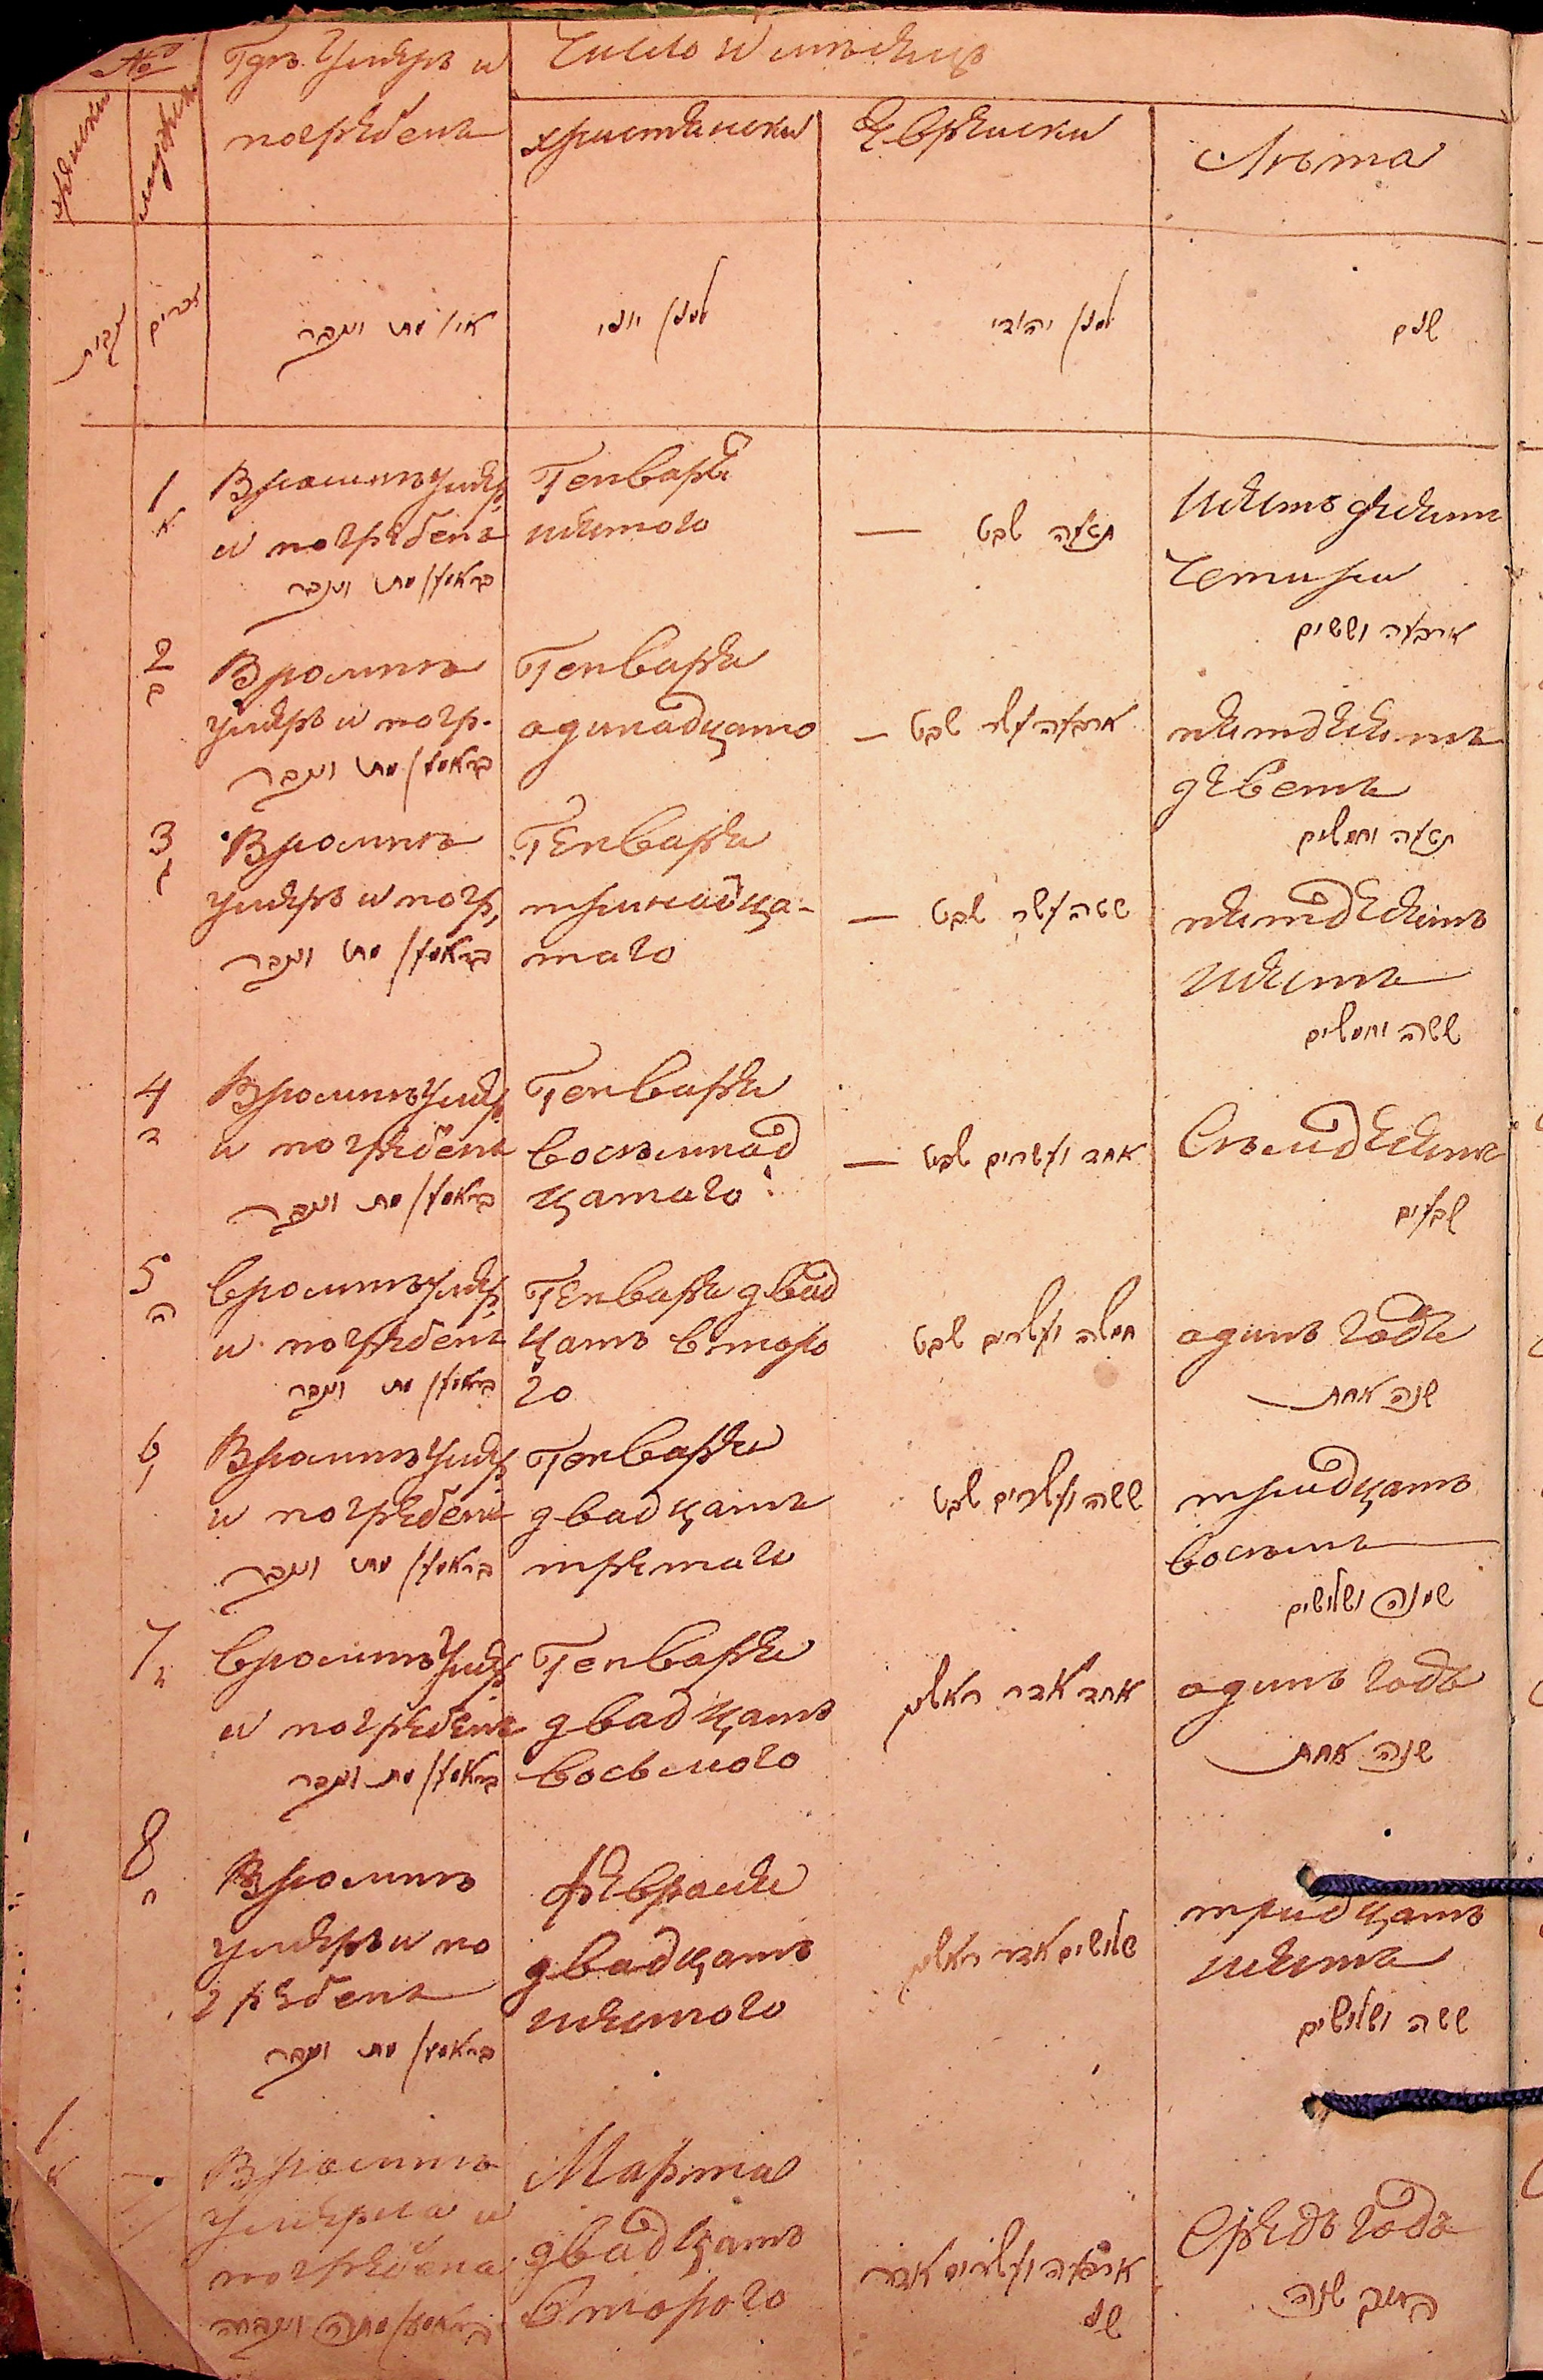 №
Гдѣ Умерѣ и
погребенъ
Число и мѣсяцъ
христянски
Еврейски
Лѣта
נקבות
זכרים
איין מת ונקבר
למנין יוני
למנין יהודי
שנים
1
א
Вромнѣ умер
и погребенъ
בראמין מת ונקבר
Генваря
шестого
תשעה שבט
шестьдесят
четири
ארבעה וששים
2
ב
Вромнѣ
умерѣ и погр.
בראמין מת ונקבר
Генваря
одинадцато
ארבעה עשר שבט
пятдесятъ
деветь
תשעה וחמשים
3
ג
Вромнѣ
умерѣ и погр,
בראמין מת ונקבר
Генваря
тринадца-
таго
ששה עשר שבט
пятдесятъ
шесть
ששה וחמשים
4
ד
Вромнѣ умер
и погребенъ
בראמין מת ונקבר
Генваря
восъмнад
цатаго
אחד ועשרים שבט
Семдесять
שבעים
5
ה
Вромнѣ умер
и погребенъ
בראמין מת ונקבר
Генваря двад
цать второ
го
חמשה ועשרים שבט
одинъ годъ
שנה אחת
6
ו
Вромнѣ умер
и погребенъ
בראמין מת ונקבר
Генваря
двадцать
третаго
ששה ועשרים שבט
тридцать
восѣмъ
שמנה ושלושים
7
ז
Вромнѣ умер
и погребенъ
בראמין מת ונקבר
Генваря
двадцать
восьмого
אחד אדר ראשון
одинъ годъ
שנה אחת
8
ח
Вромнѣ
умерѣ и по
гребенъ
בראמין מת ונקבר
февраля
двадцать
шестого
שלושים אדר ראשון
тридцать
шесть
ששה ושלושים
1
א
Вромнѣ
умерла и
погребена
בראמין מתה ונקברה
Марта
двадцать
второго
ארבעה ועשרים אדר
שני
Средъ года
חצי שנה